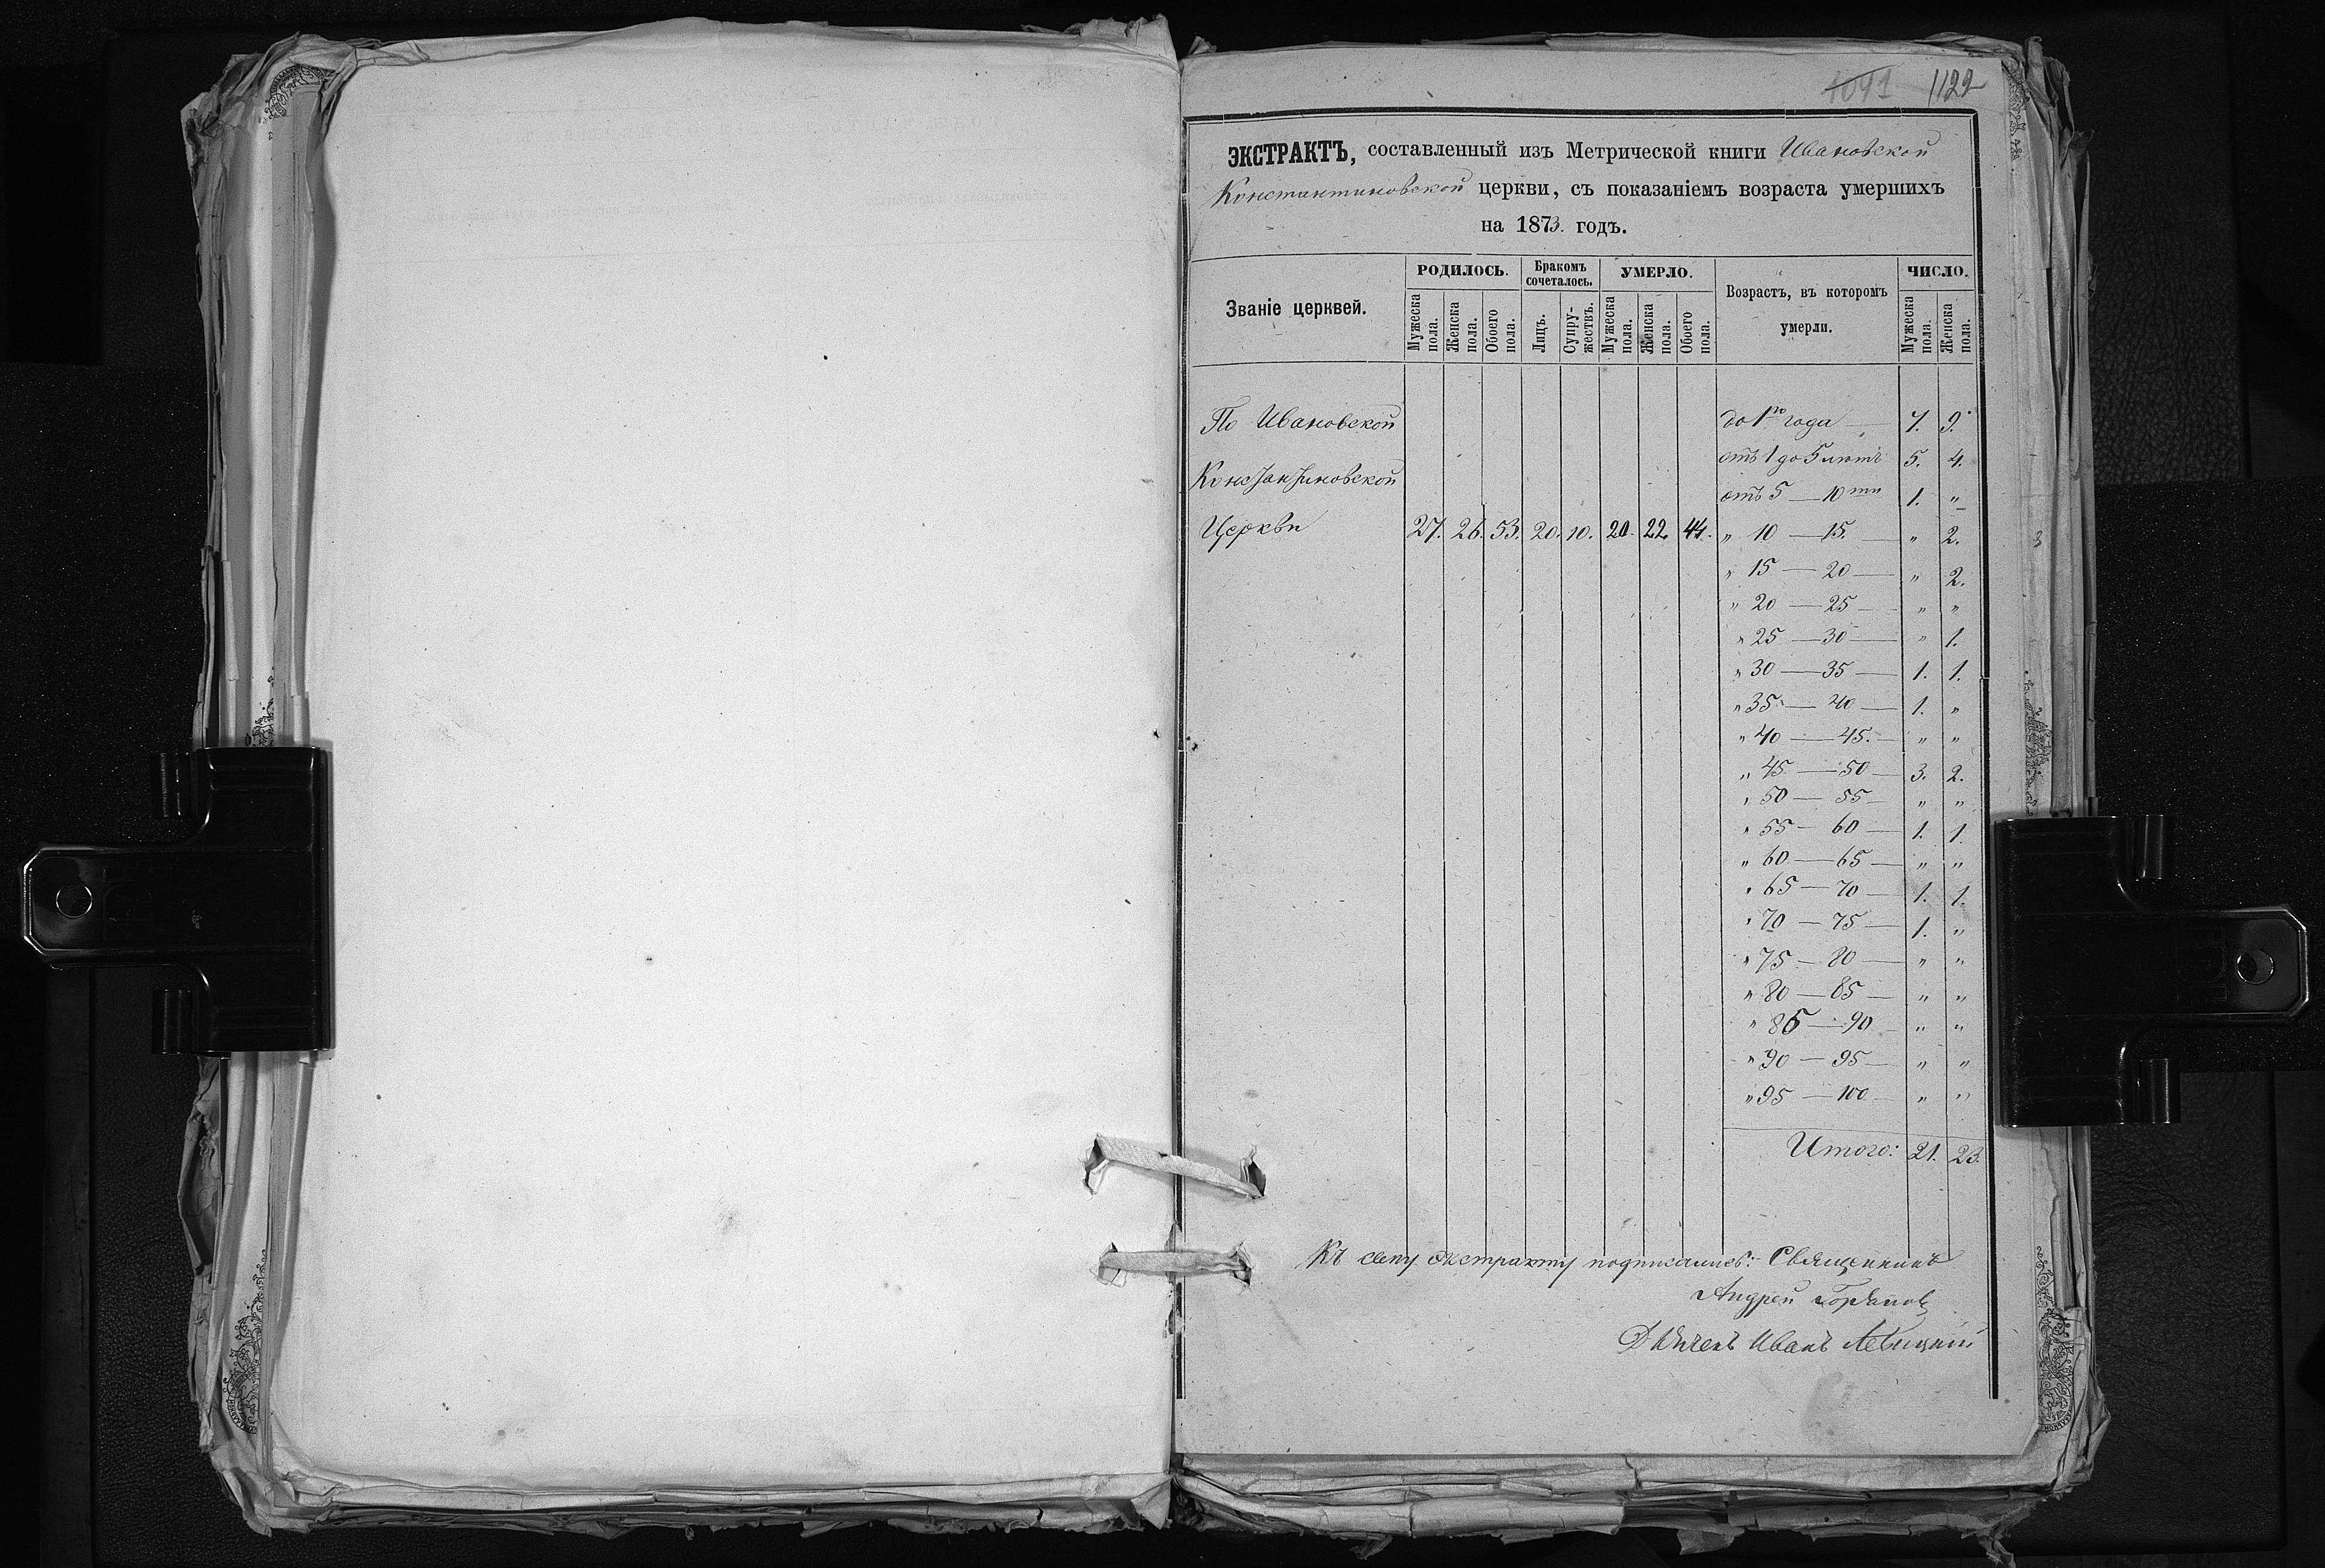 1041 1122
ЭКСТРАКТЪ, составленный изъ Метрической книги Ивановской
Константиновской церкви, съ показаніемъ возраста умершихъ
на 1873. годъ.
Званіе церквей.
РОДИЛОСЬ.
Бракомъ сочеталось.
УМЕРЛО.
Возрастъ, въ которомъ умерли.
ЧИСЛО.
Мужеска пола.
Женска пола.
Обоего пола.
Лицъ.
Супружествъ.
Мужеска пола.
Женска пола.
Обоего пола.
Мужеска пола.
Женска пола.
По Ивановской до 1го года — 7. 9.
отъ 1 до 5 летъ 5. 4.
Константиновской
отъ 5 — 10ти 1. "
Церкви 27. 26. 53. 20. 10. 20. 22. 44. " 10 — 15. — " 2.
" 15 — 20 — " 2.
" 20 — 25 — " "
" 25 — 30 — " 1.
" 30 — 35 — 1. 1.
" 35 — 40 — 1. "
" 40 — 45. — " "
" 45 — 50 — 3. 2.
" 50 — 55 — " "
" 55 — 60 — 1. 1.
" 60 — 65 — " "
" 65 — 70 — 1. 1.
" 70 — 75 — 1. "
" 75 — 80 — " "
" 80 — 85 — " "
" 85 — 90 — " "
" 90 — 95 — " "
" 95 — 100 — " "
Итого: 21. 23.
Къ сему экстракту подписались: Священникъ
Андрей
Иванъ Левицкій